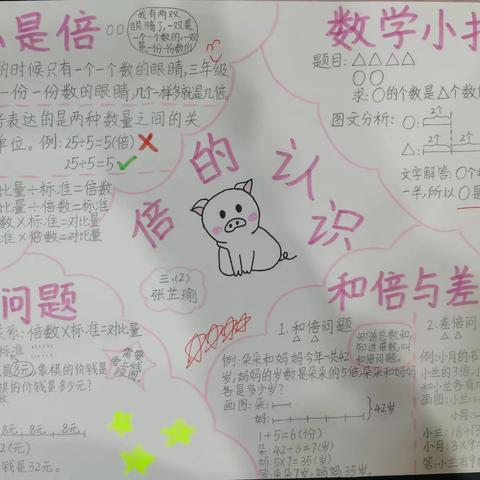 是倍
我有两双
眼睛了,一双是
一个一个的,一双
是一份一份数的
的时候只有一个一个数的眼睛,三年级
一份一份数的眼睛,几个一样多就是几倍
表达的是两种数量之间的关
单位。例:25÷5=5(倍)
25÷5=5
比量÷标准=倍数
比量÷倍数=标准
数×标准=对比量
准×倍数=对比量
数学小
题目:△△△△
○○
求:○的个数是△个数
图文分析:○:
2个
△:
2个 2个
文字解答:○个
一半,所以○是
倍的认识
三.(2)
张芷瑜
问题
关系:倍数×标准=对比量
标准
是8元,象棋的价钱是
棋的价钱是多少元?
需要
画线
段图
8元 8元 8元
(元)
钱是32元。
和倍与差
1.和倍问题
知道总数和,
知道倍数,叫
和倍问题。
例:朵朵和妈妈今年一共42
岁,妈妈的岁数是朵朵的5倍,朵朵和妈妈
各是多少岁?
画图:朵:
妈:
42岁
1+5=6(份)
朵:42÷6=7(岁)
妈:5×7=35(岁)
答:朵朵7岁,妈妈35岁。
2.差倍问
例:小月的书
小兰的3倍,小
和小兰各有
画图:小兰:
小月:
小兰:18÷(3
小月:3×9=
答:小兰有9本